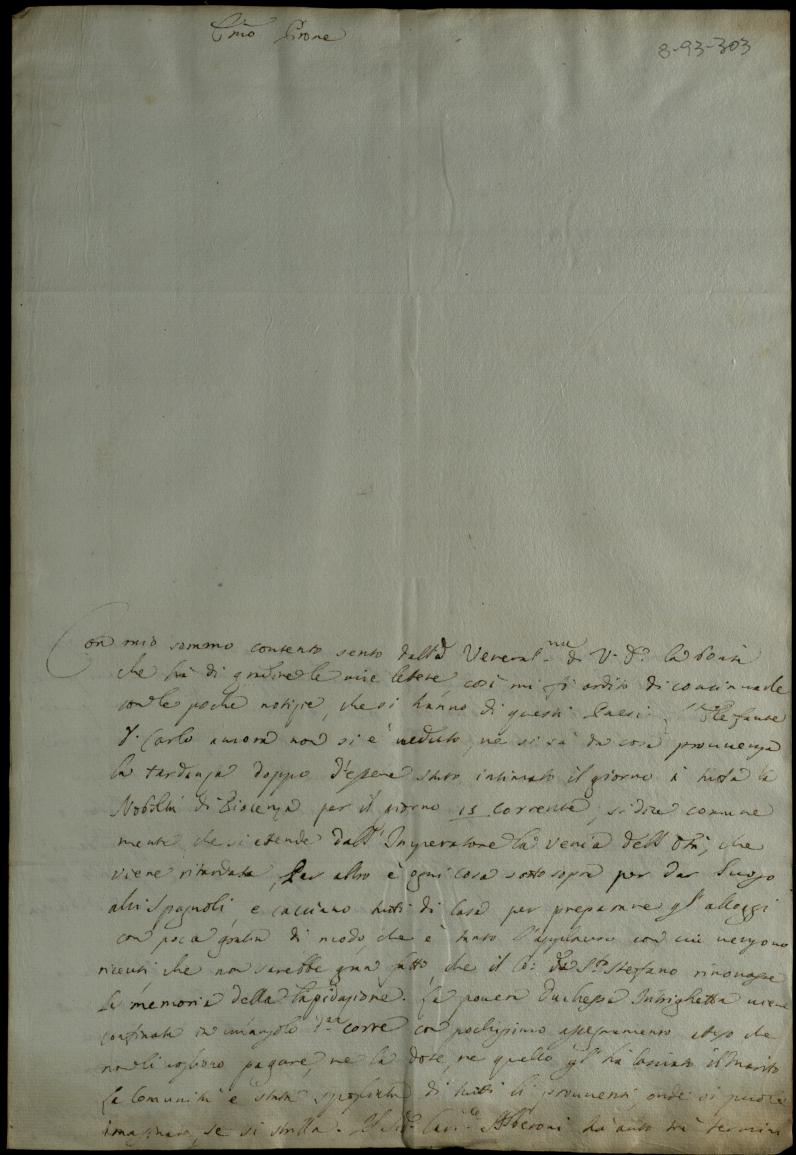 Prone
8-93-303
Con mio sommo contento sento dalla di V. la bontà
che hà di gradire le mie lettere, così mi fò ardito di continuarle
con le poche notizie, che si hanno di questi Paesi;
D. Carlo ancora non si è veduto, ne si sà da cosa provenga
la tardanza doppo d'essere stato intimato il giorno à tutta la
Nobiltà di Piacenza per il giorno 15 corrente; si dice comune
mente, che si attende dall'Imperatore la venia dell' che
viene ritardata. Per altro è ogni cosa sotto sopra per dar luogo
alli Spagnoli, e cacciano tutti di Casa per preparare gl'alloggi
con poca gratia di modo, che è tanto l'applauso con cui vengono
ricevuti, che non sarebbe gran fatto, che il S.to Stefano rinovasse
la memoria della lapidazione. La povera Duchessa Enrighetta viene
confinata in un angolo Corte con pochissimo assegnamento che
non li vogliono pagare, ne la dote, ne quello gl'hà lasciato il Marito
La Comunità è stata di tutti li provventi, onde si puole
imaginare, se si strilla. Il Alberoni ha auto trè termini